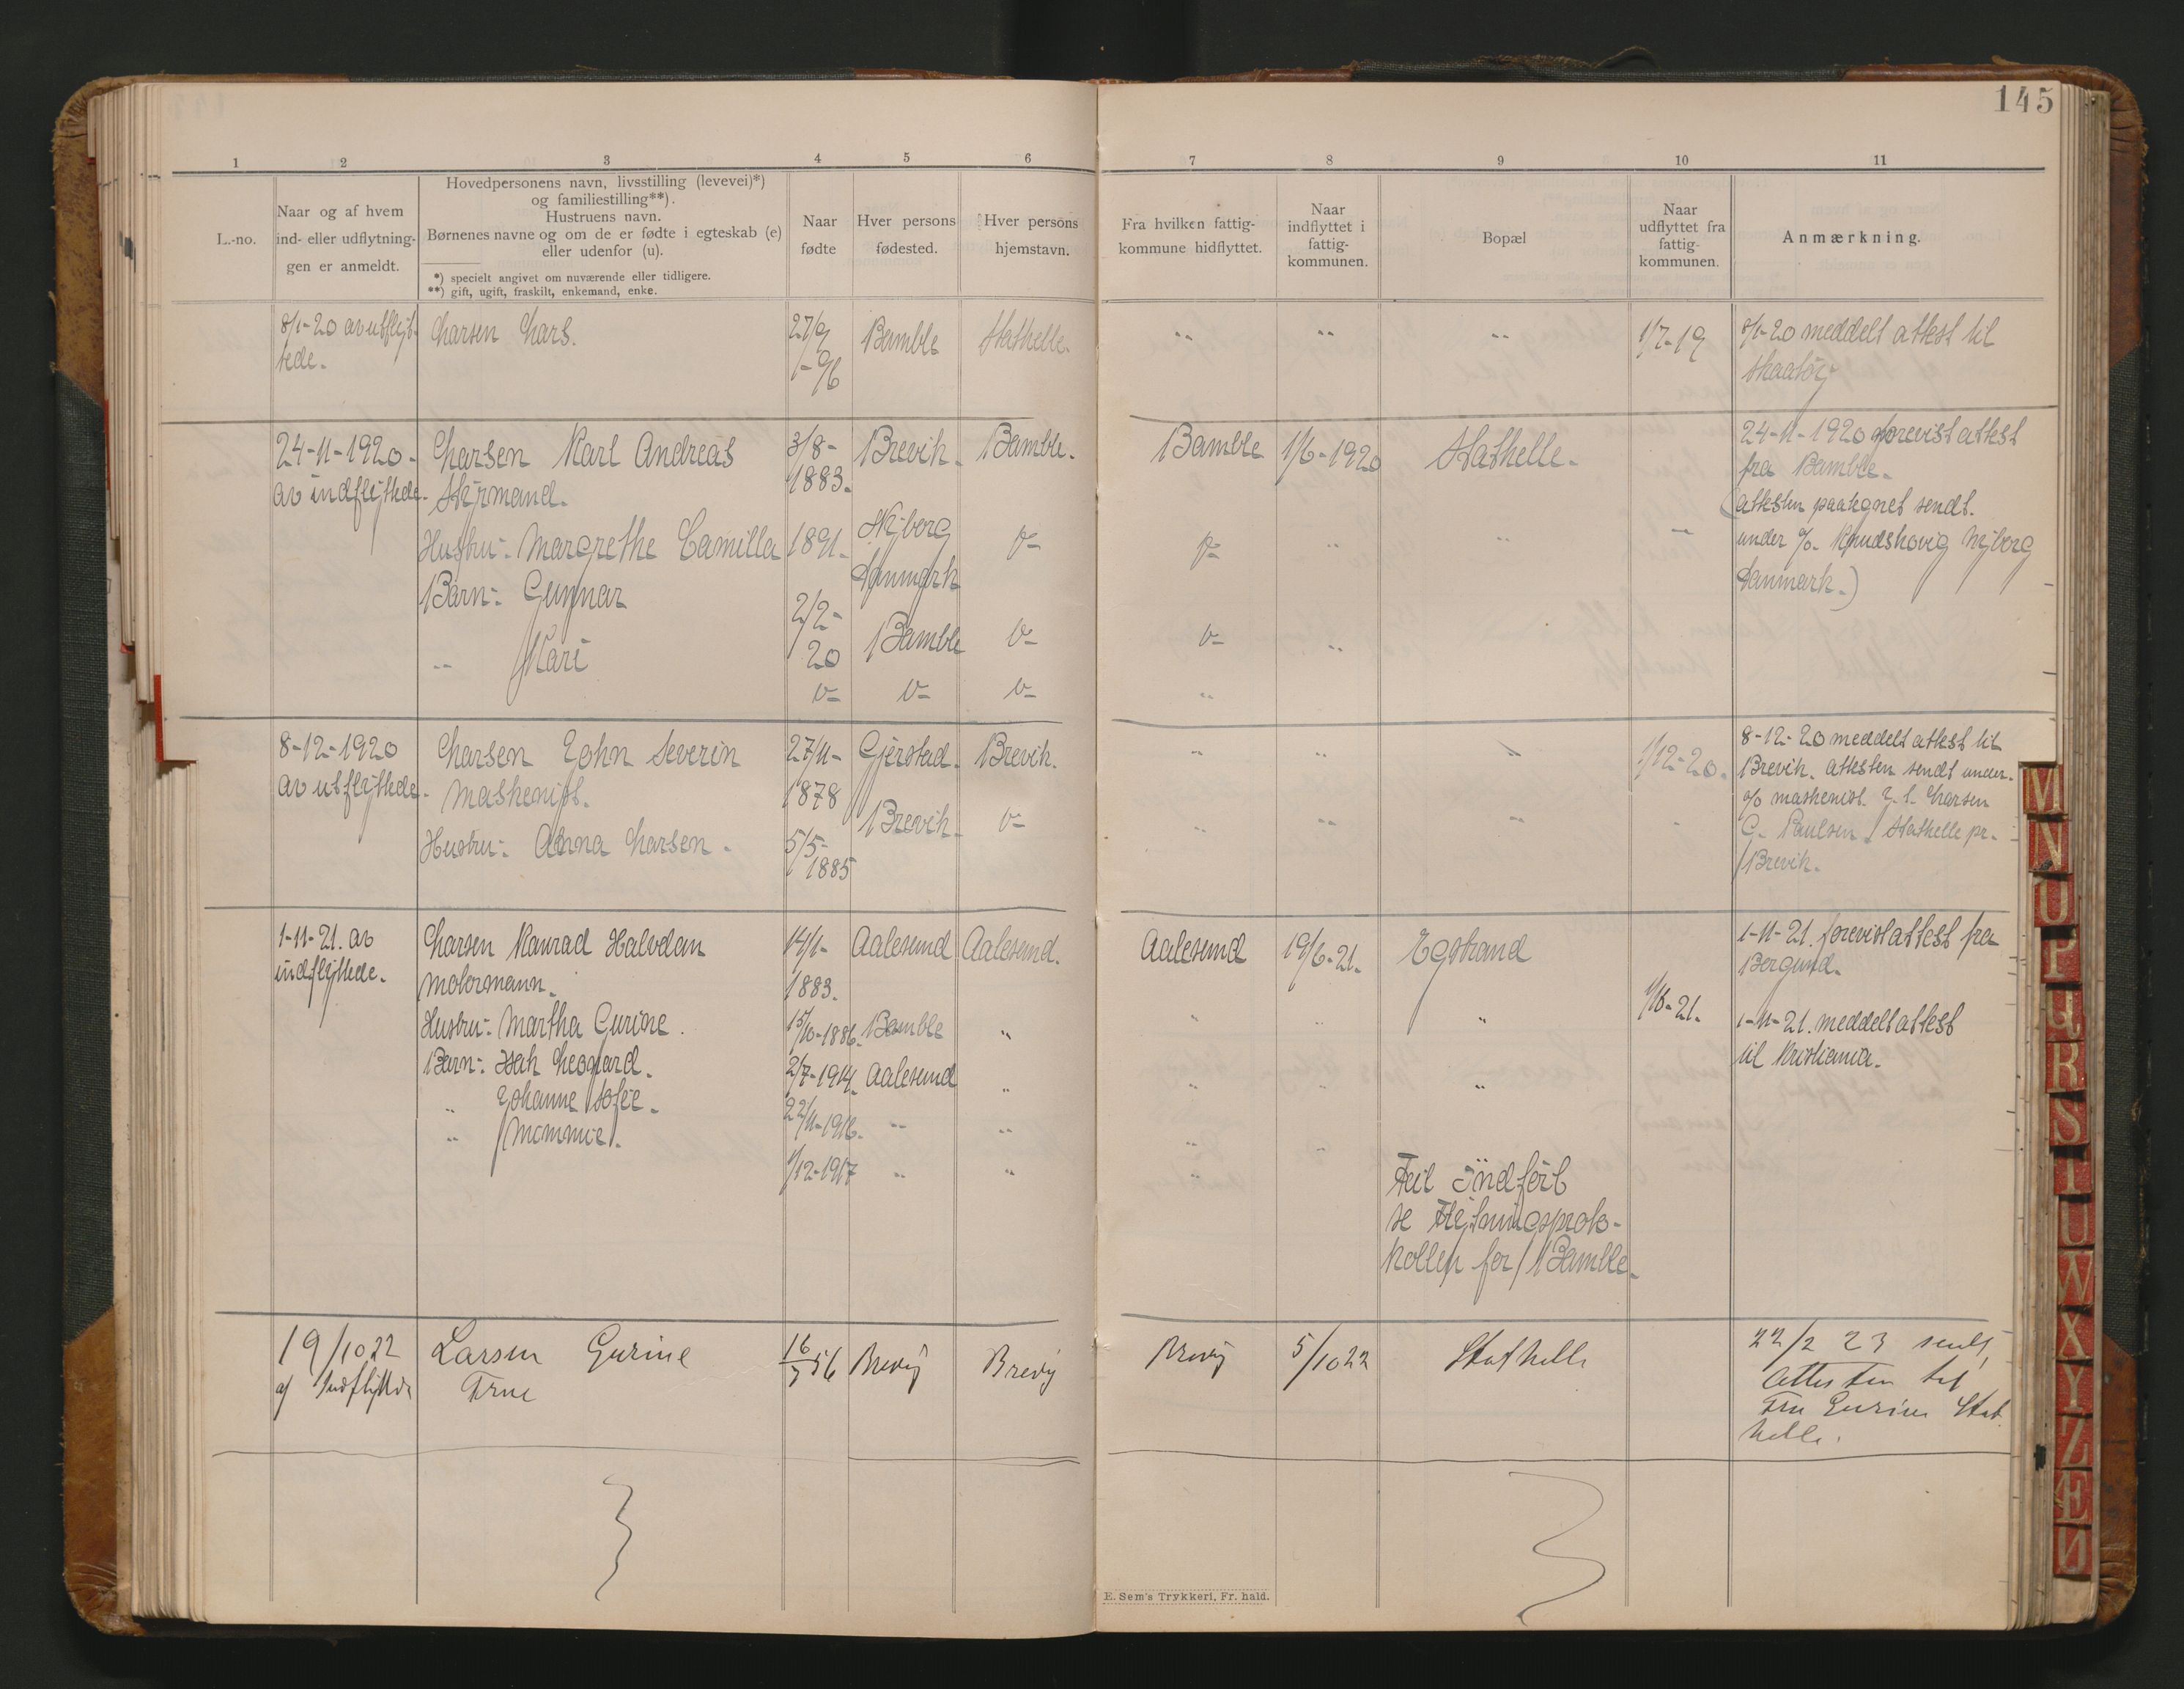 145
1 2 3 4 5 6 7 8 9 10 11
L.-no.
Naar og af hvem
ind- eller udflytnin-
gen er anmeldt.
Hovedpersonens navn, livsstilling (levevei)*)
og familiestilling**).
Hustruens navn.
Børnenes navne og om de er fødte i egteskab (e)
eller udenfor (u).
*) specielt angivet om nuværende eller tidligere.
**) gift, ugift, fraskilt, enkemand, enke.
Naar
fødte
Hver persons
fødested.
Hver persons
hjemstavn.
Fra hvilken fattig-
kommune hidflyttet.
Naar
indflyttet i
fattig-
kommunen.
Bopæl
Naar
udflyttet fra
fattig-
kommunen.
Anmærkning.
8/1-20 av utflyt-
tede.
Larsen Lars.
27/9
1-96
Bamble
Stathelle.
" " "
1/7-19
8/1-20 meddelt attest til
Skaatøy
24-11-1920.
av indflyttede.
Larsen Karl Andreas
Styrmand.
Hustru: Margrethe Camilla
Barn: Gunnar
" Kari
3/8-
1883.
1891.
2/2-
20
Brevik.
Nyborg
Danmark
Bamble
Bamble.
Bamble
1/6-1920
Stathelle.
24-11-1920 forevist attest
fra Bamble.
(attesten paategnet sendt.
under c/o. Knudshovig Nyborg
Danmark.)
8-12-1920
av utflyttede.
Larsen John Severin
Maskenist.
Hustru: Anna Larsen.
27/11-
1878
5/5-
1885
Gjerstad.
Brevik.
Brevik.
1/12-20.
8-12-20 meddelt attest til
Brevik. attesten sendt under.
c/o maskenist. J. S. Larsen
C. Paulsen. Stathelle pr.
Brevik.
1-11-21. av
indflyttede.
Larsen Konrad Halvdan
Motormann.
Hustru: Martha Gurine.
Barn: Isak Leonard.
" Johanne Sofie.
" Mimmie.
14/1-
1883.
15/10-1886.
2/7-1914.
22/11-1916.
1/12-1917
Aalesund
Bamble
Aalesund
Aalesund.
Aalesund
19/6-21.
Egstrand
Feil Indført
se Flytningsproto-
kollen for Bamble.
1/10-21.
1-11-21. forevist attest fra
Borgund.
1-11-21. meddelt attest
til Kristiania.
19/10 22
af Indflyttede
Larsen Gurine
Frue
16/7 56
Brevig
Brevig
Brevig
5/10 22
Stathelle
22/2 23 sendt
Attesten til
Fru Gurine Stat
helle.
E. Sem's Trykkeri, Fr. hald.
M
N
O
P
Q
R
S
T
U
W
X
Y
Z
Æ